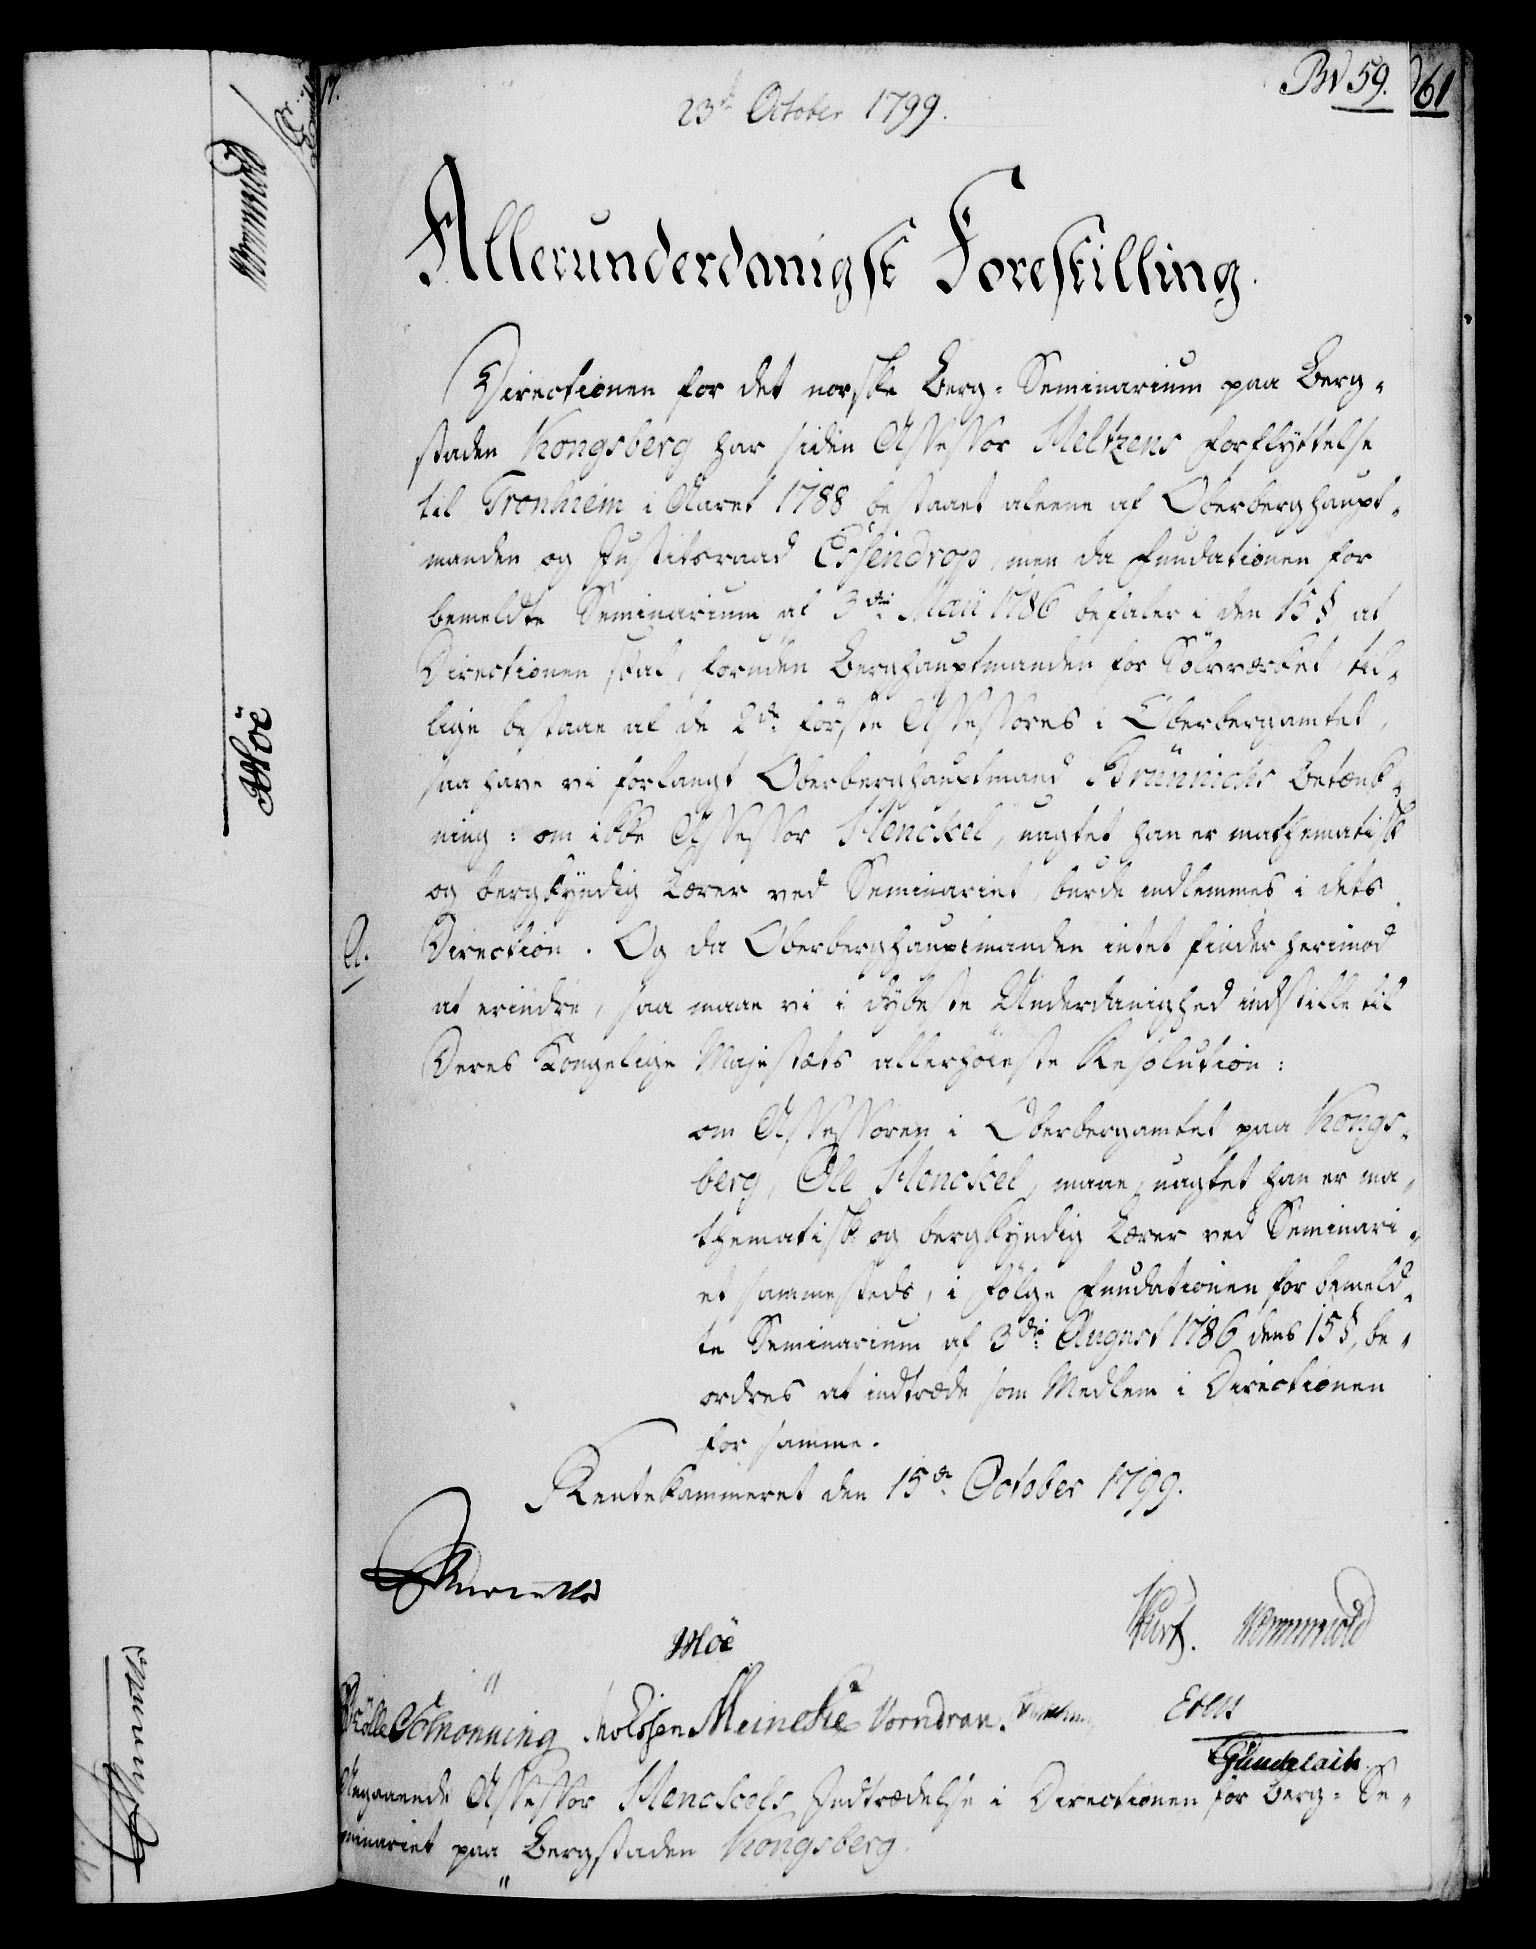 23de October 1799.
Bv 59.
61
Allerunderdanigst Forestilling.
Directionen for det norske Berg-Seminarium paa Berg-
staden Kongsberg har siden Assessor Meltzens Forflÿttelse
til Tronhiem i Aaret 1788 bestaaet aleene af Oberberghaupt-
manden og Justitsraad Essendrop, men da Fundationen for
bemeldte Seminarium af 3die Maii 1786 befaler i den 15 §, at
Directionen skal, foruden Berghauptmanden for Sölvværket, til-
lige bestaae af de 2de förste Assessores i Oberbergamtet,
saa have vi forlangt Oberberghauptmand Brünnichs Betænk-
ning: om ikke Assessor Henckel, uagtet han er mathematisk
og bergkÿndig Lærer ved Seminariet, burde indlemmes i dets
A. Direction. Og da Oberberghauptmanden intet finder herimod
at erindre, saa maae vi i dÿbeste Underdanighed indstille til
Deres Kongelige Majestæts allerhöieste Resolution:
om Assessoren i Oberbergamtet paa Kongs-
berg, Ole Henckel, maae, uagtet han er ma-
thematisk og bergkÿndig Lærer ved Seminari-
et sammesteds, i Fölge Fundationen for bemeld-
te Seminarium af 3die August 1786 dens 15 §, be-
ordres at indtræde som Medlem i Directionen
for samme.
Rentekammeret den 15de October 1799.
Hurf. Wormskiold
Moe
Schönning Meincke Vorndran.
Gundelach
Angaaende Assessor Henckels Indtrædelse i Directionen for Berg-Se-
minariet paa Bergstaden Kongsberg.
Wormskiold
Moe